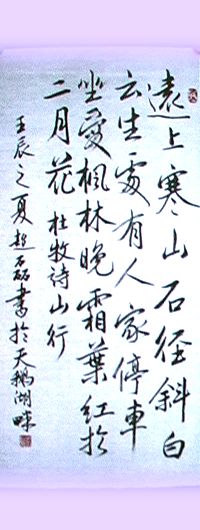 遠上寒山石径斜白
云生處有人家停車
坐愛楓林晚霜葉紅於
二月花 杜牧诗山行
壬辰之夏超石磊書於天鹅湖畔